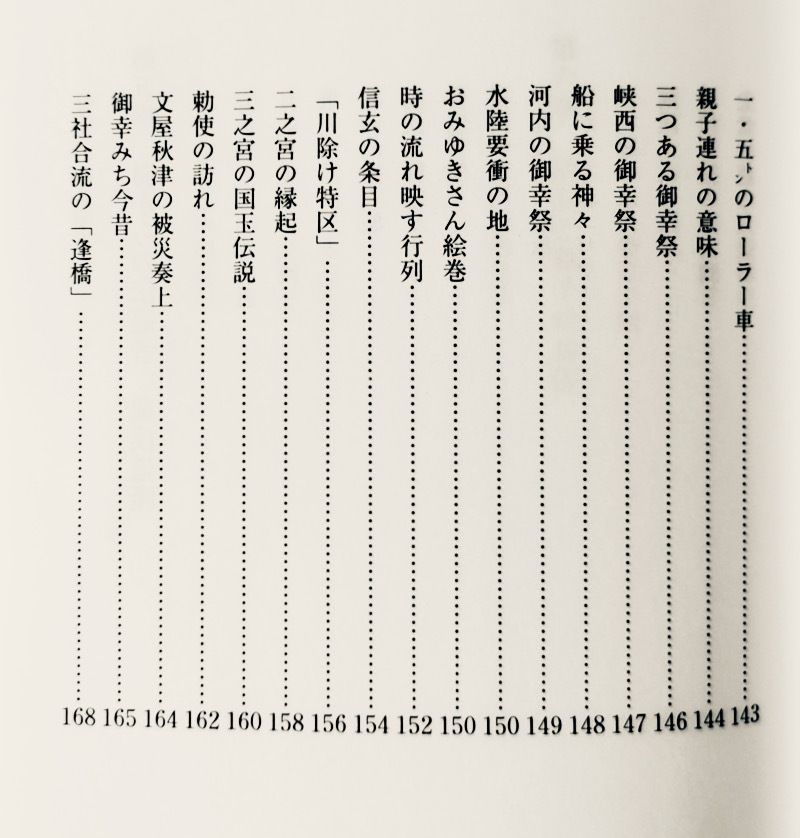 一・五㌧のローラー車……143
親子連れの意味……144
三つある御幸祭……146
峡西の御幸祭……147
船に乗る神々……148
河内の御幸祭……149
水陸要衝の地……150
おみゆきさん絵巻……150
時の流れ映す行列……152
信玄の条目……154
「川除け特区」……156
二之宮の縁起……158
三之宮の国玉伝説……160
勅使の訪れ……162
文屋秋津の被災奏上……164
御幸みち今昔……165
三社合流の「逢橋」……168